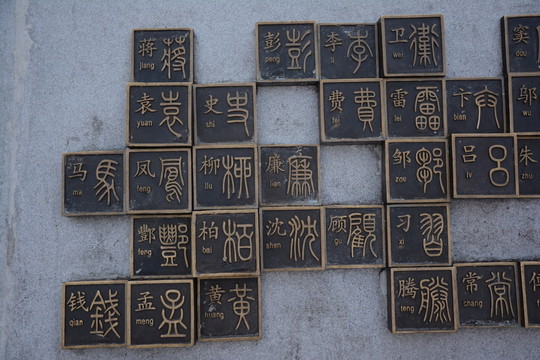 蒋 蔣
jiang
彭 彭
peng
李 李
li
卫 衛
wei
窦
dou
袁 袁
yuan
史 史
shi
费 費
fei
雷 雷
lei
卞 卞
bian
邬
wu
马 馬
ma
凤 鳳
feng
柳 柳
liu
廉 廉
lian
邹 鄒
zou
吕 呂
lv
朱
zhu
酆 酆
feng
柏 柏
bai
沈 沈
shen
顾 顧
gu
习 習
xi
钱 錢
qian
孟 孟
meng
黄 黃
huang
腾 騰
teng
常 常
chang